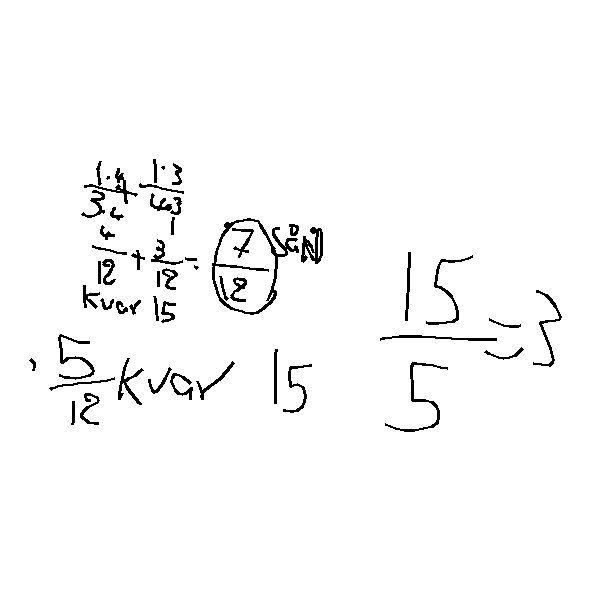 1·4/3·4 + 1·3/4·3
4/12 + 3/12 = 7/12
kvar 15
5/12 kvar 15
15/5 = 3